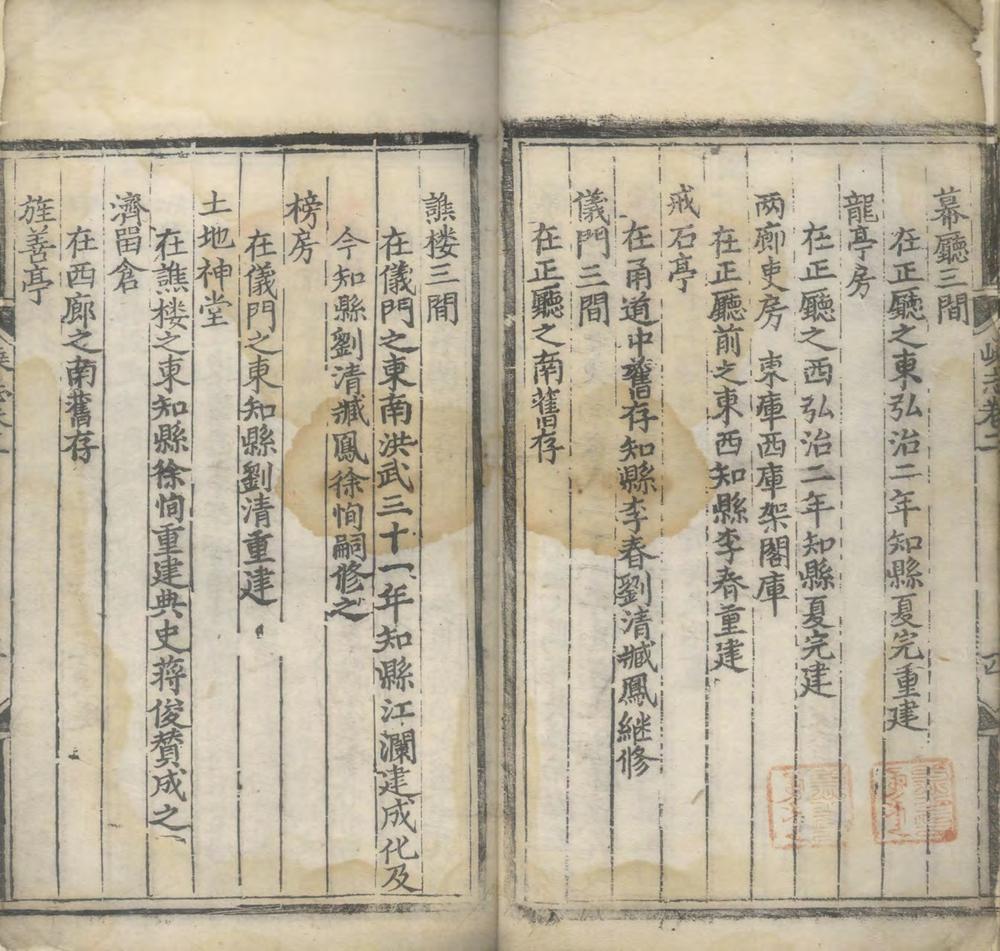 幕廳三間
在正廳之東弘治二年知縣夏完重建
龍亭房
在正廳之西弘治二年知縣夏完建
两廊吏房　東庫西庫架閣庫
在正廳前之東西知縣李春重建
戒石亭
在甬道中舊存知縣李春劉清臧鳳継修
儀門三間
在正廳之南舊存
譙楼三間
在儀門之東南洪武三十一年知縣江瀾建成化及
今知縣劉清臧鳳徐恂嗣修之
榜房
在儀門之東知縣劉清重建
土地神堂
在譙楼之東知縣徐恂重建典史蒋俊賛成之
濟留倉
在西廊之南舊存
旌善亭